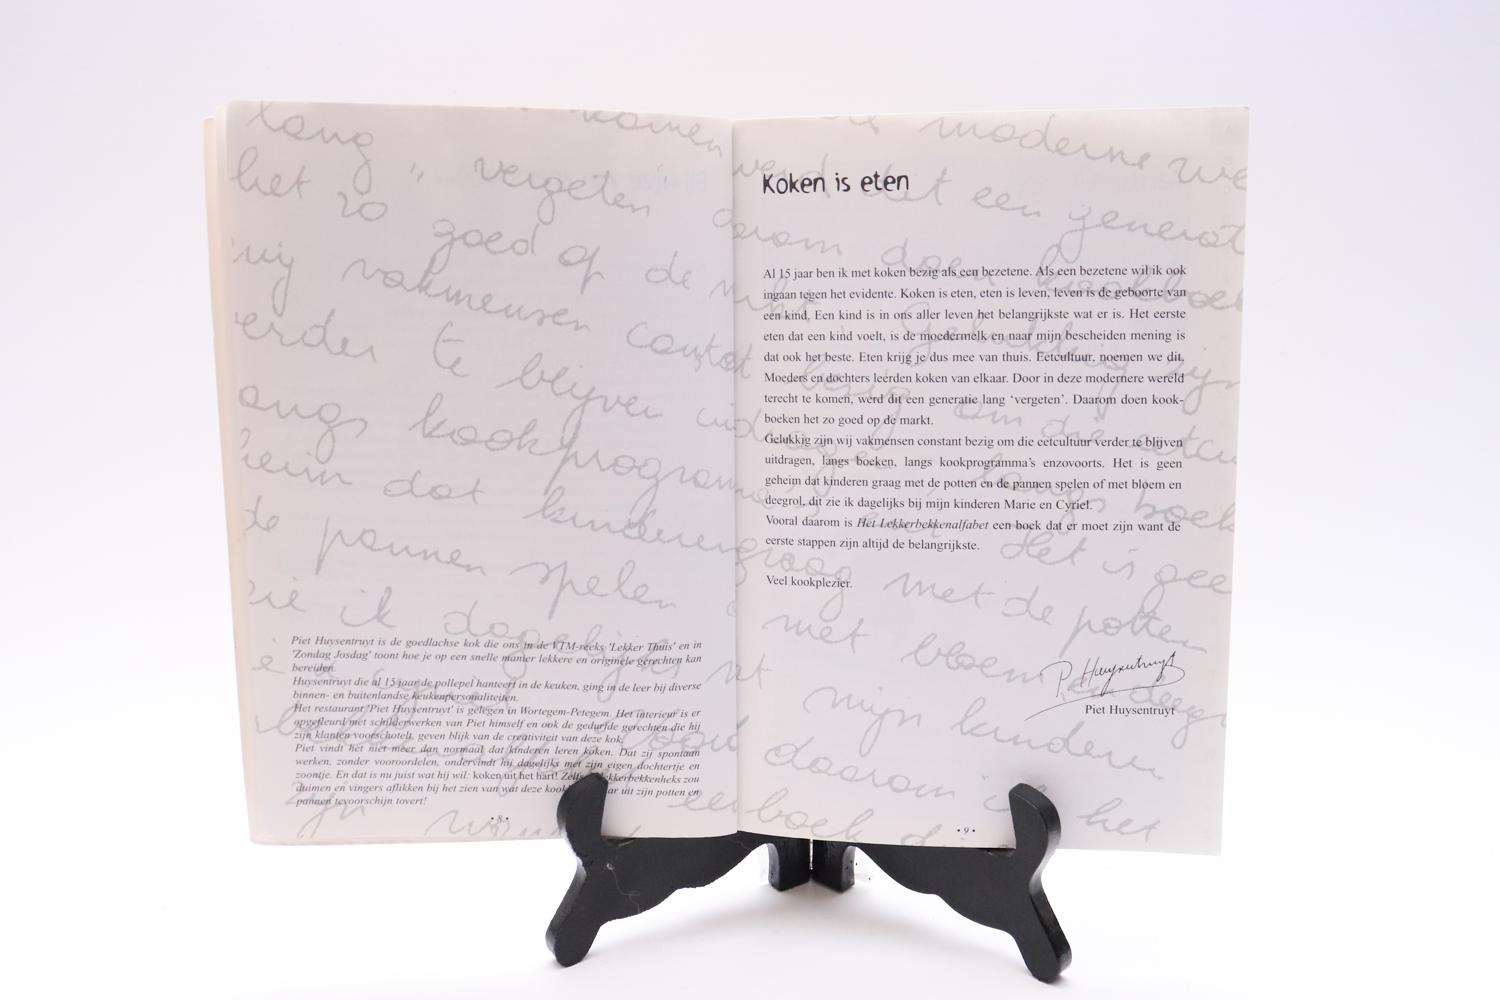 Piet Huysentruyt is de goedlachse kok die ons in de VTM-reeks 'Lekker Thuis' en in
'Zondag Josdag' toont hoe je op een snelle manier lekkere en originele gerechten kan
bereiden.
Huysentruyt die al 15 jaar de pollepel hanteert in de keuken, ging in de leer bij diverse
binnen- en buitenlandse keukenpersonaliteiten.
Het restaurant 'Piet Huysentruyt' is gelegen in Wortegem-Petegem. Het interieur is er
opgefleurd met schilderwerken van Piet himself en ook de gedurfde gerechten die hij
zijn klanten voorschotelt, geven blijk van de creativiteit van deze kok.
Piet vindt het niet meer dan normaal dat kinderen leren koken. Dat zij spontaan
werken, zonder vooroordelen, ondervindt hij dagelijks met zijn eigen dochtertje en
zoontje. En dat is nu juist wat hij wil: koken uit het hart! lekkerbekkenheks zou
duimen en vingers aflikken bij het zien van wat deze uit zijn potten en
pannen tevoorschijn tovert!
• 8 •
lang " vergeten
het zo goed op de
wij vakmensen constant
verder te blijven uitdragen
langs kookprogramma's
geheim dat kinderen graag
de pannen spelen
zie ik dagelijks
Koken is eten
Al 15 jaar ben ik met koken bezig als een bezetene. Als een bezetene wil ik ook
ingaan tegen het evidente. Koken is eten, eten is leven, leven is de geboorte van
een kind. Een kind is in ons aller leven het belangrijkste wat er is. Het eerste
eten dat een kind voelt, is de moedermelk en naar mijn bescheiden mening is
dat ook het beste. Eten krijg je dus mee van thuis. Eetcultuur, noemen we dit.
Moeders en dochters leerden koken van elkaar. Door in deze modernere wereld
terecht te komen, werd dit een generatie lang ‘vergeten’. Daarom doen kook-
boeken het zo goed op de markt.
Gelukkig zijn wij vakmensen constant bezig om die eetcultuur verder te blijven
uitdragen, langs boeken, langs kookprogramma's enzovoorts. Het is geen
geheim dat kinderen graag met de potten en de pannen spelen of met bloem en
deegrol, dit zie ik dagelijks bij mijn kinderen Marie en Cyriel.
Vooral daarom is Het Lekkerbekkenalfabet een boek dat er moet zijn want de
eerste stappen zijn altijd de belangrijkste.
Veel kookplezier.
P. Huysentruyt
Piet Huysentruyt
• 9 •
moderne
werd dat een
daarom doen kookboek
Gelukkig zijn
bezig om die
langs boek
Het is
met de potten
met bloem en deegr
mijn kinderen
daarom is het
een boek